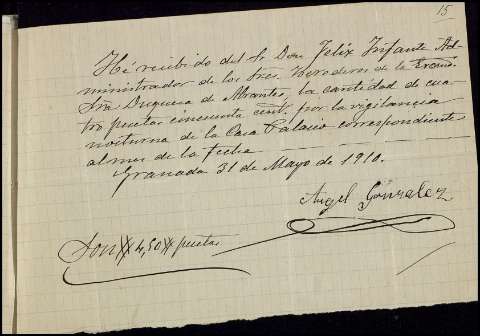 15
Hé recibido del Sr. Don Felix Infante Ad-
ministrador de los Sres. herederos de la Excma.
Sra Duquesa de Abrantes, la cantidad de cua-
tro pesetas cincuenta cent. por la vigilancia
nocturna de la Casa Palacio correspondiente
al mes de la fecha
Granada 31 de Mayo de 1910.
Angel Gonzalez
Son 4,50 pesetas